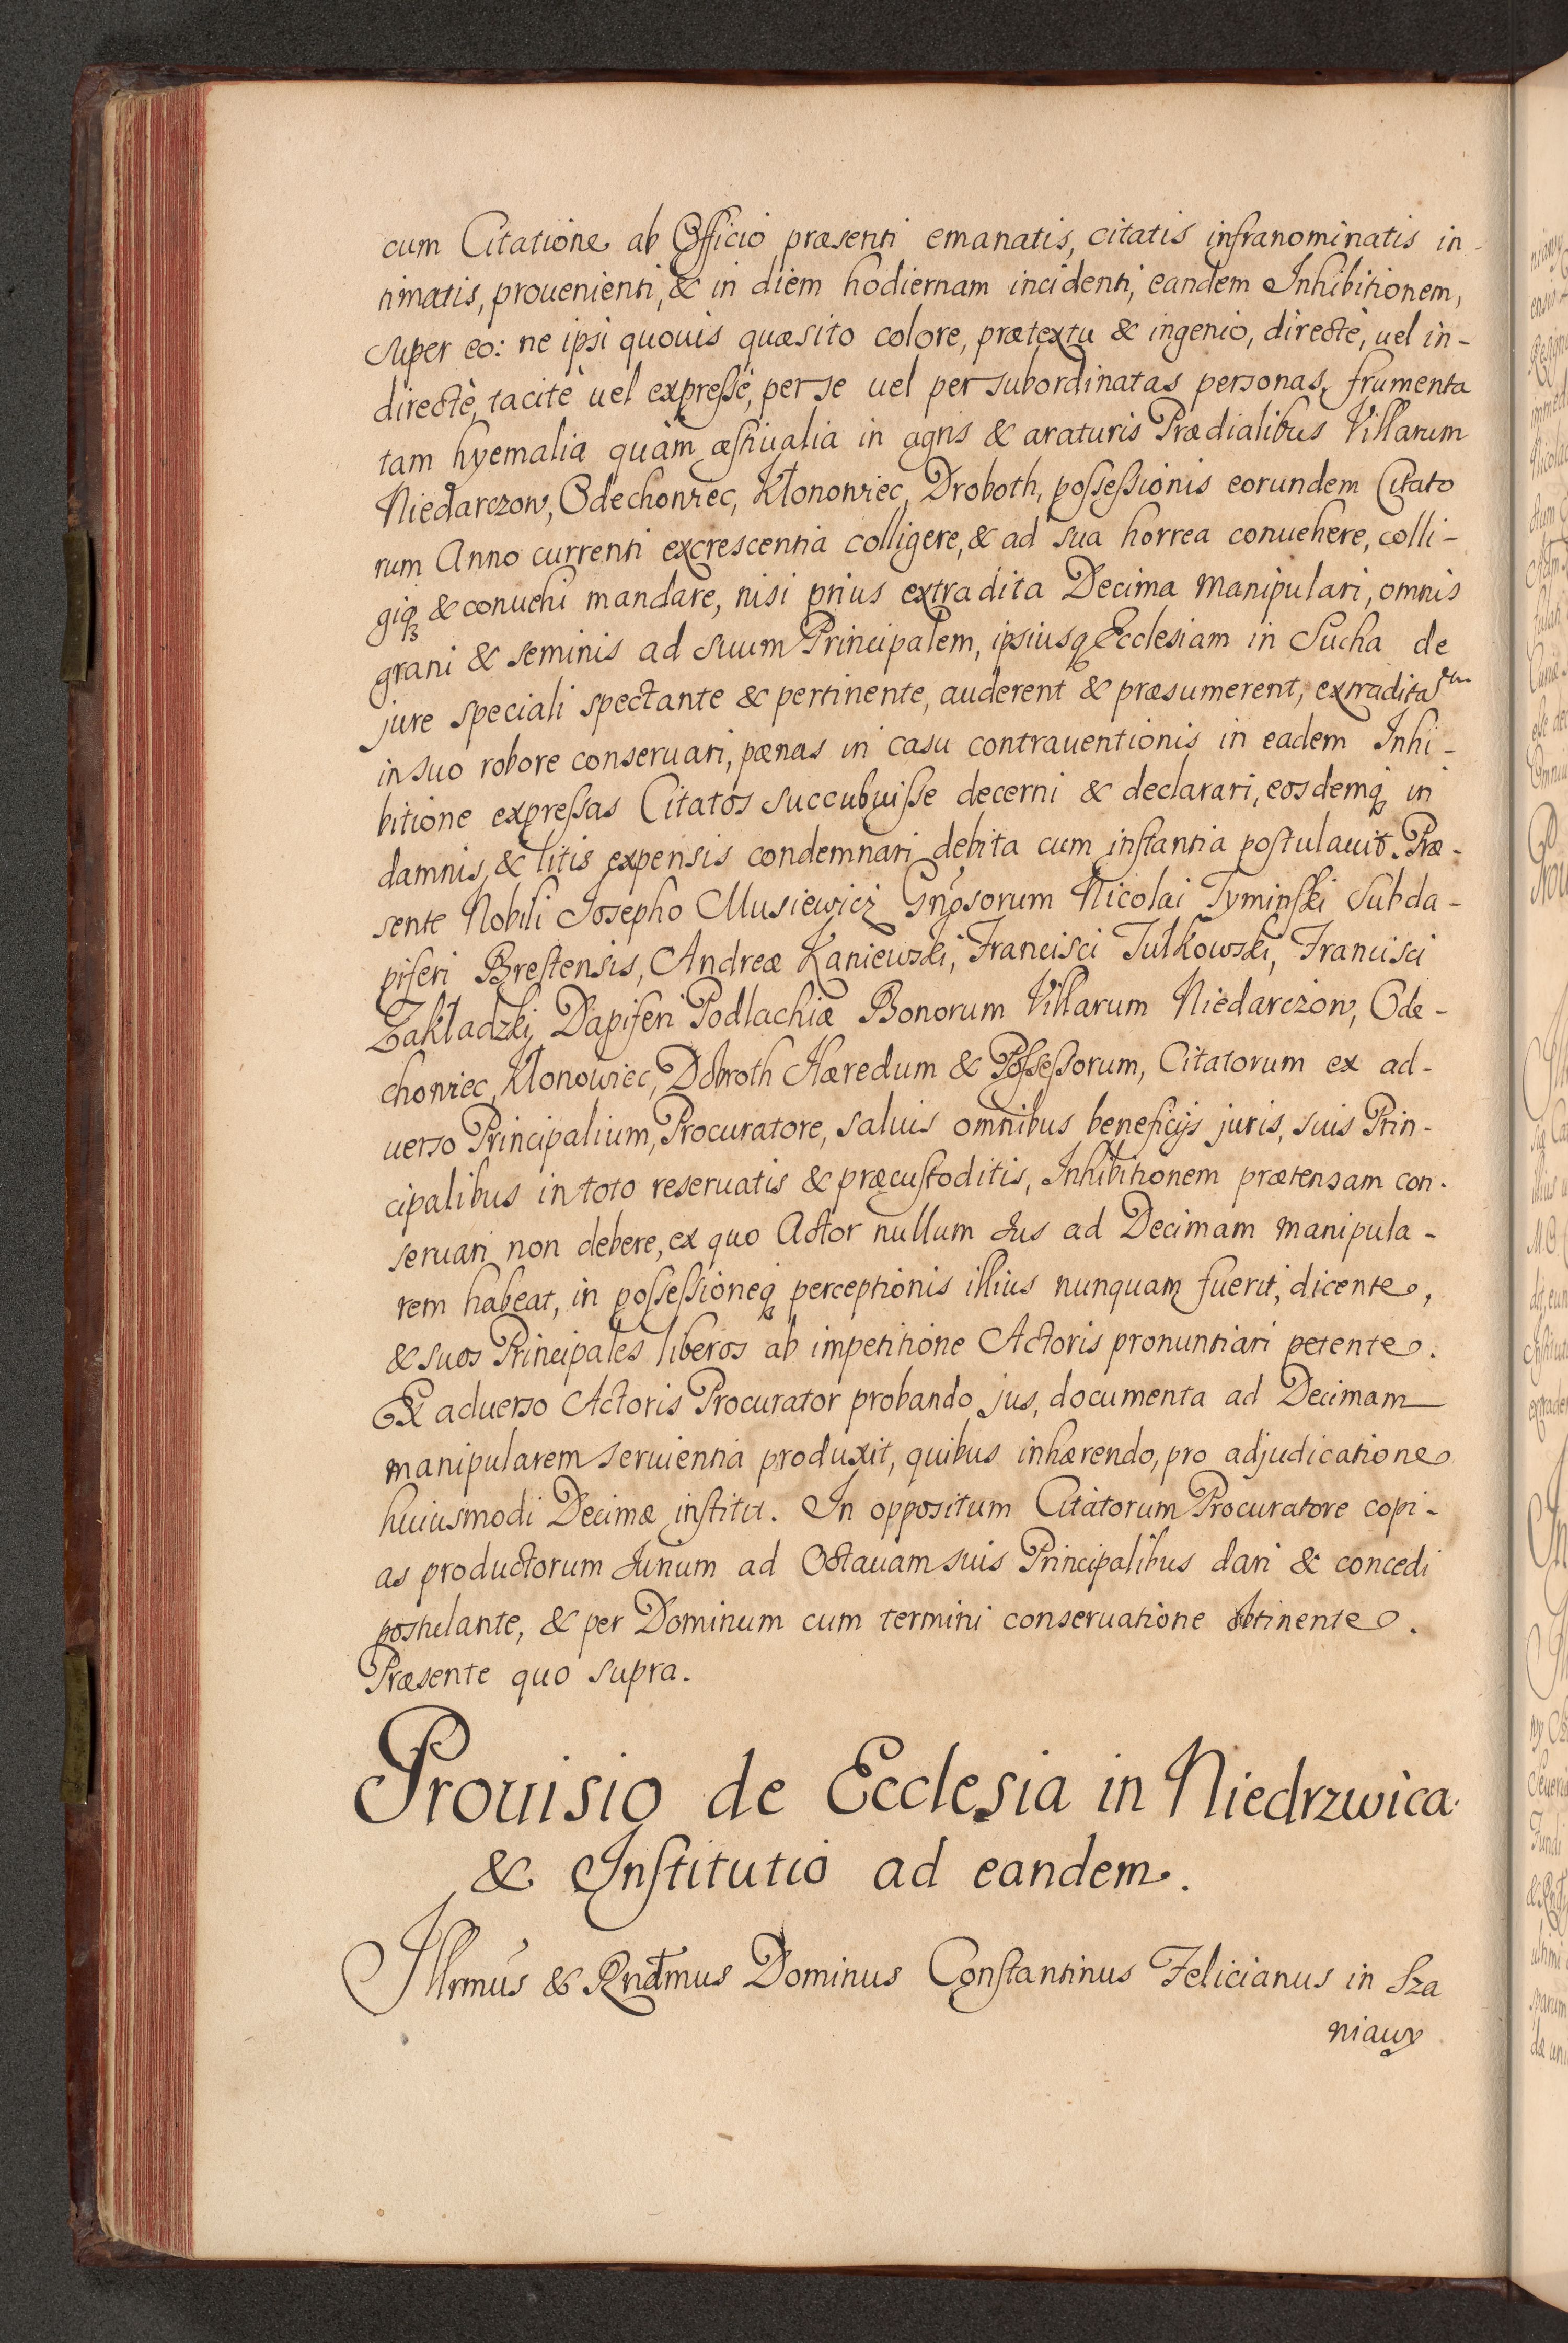 cum Citatione ab Officio præsenti emanatis, citatis infranominatis in-
timatis, prouenienti, & in diem hodiernam incidenti, eandem Inhibitionem,
super eo: ne ipsi quouis quæsito colore, prætextu & ingenio, directè, uel in-
directè, tacitè uel expreſsè, per se uel per subordinatas personas, frumenta
tam hyemalia quàm æſtiualia in agris & araturis Prædialibus Villarum
Niedarczow, Odechowiec, Kłonowiec, Droboth, poſseſsionis eorundem Citato
rum Anno currenti excrescentia colligere, & ad sua horrea conuehere, colli-
giq₃ & conuehi mandare, nisi prius extradita Decima manipulari, omnis
grani & seminis ad suum Principalem, ipsiusq₃ Ecclesiam in Sucha de
jure speciali spectante & pertinente, auderent & præsumerent, extradita
in suo robore conseruari, pænas in casu contrauentionis in eadem Inhi-
bitione expreſsas Citatos succubuiſse decerni & declarari, eosdemq₃ in
damnis, & litis expensis condemnari debita cum inſtantia poſtulauit. Præ-
sente Nobili Josepho Musiewicz Gnŏsorum Nicolai Tyminſki Subda-
piferi Breſtensis, Andreæ Kaniewski, Francisci Tułkowski, Francisci
Zakładzki Dapiferi Podlachiæ Bonorum Villarum Niedarczow, Ode-
chowiec, Kłonowiec, Dobroth Hæredum & Poſseſsorum, Citatorum ex ad-
uerso Principalium, Procuratore, saluis omnibus beneficijs juris, suis Prin-
cipalibus in toto reseruatis & præcuſtoditis, Inhibitionem prætensam con-
seruari non debere, ex quo Actor nullum Jus ad Decimam manipula-
rem habeat, in poſseſsioneq₃ perceptionis illius nunquam fuerit, dicente,
& suos Principales liberos ab impetitione Actoris pronuntiari petente.
Ex aduerso Actoris Procurator probando jus, documenta ad Decimam
manipularem seruientia produxit, quibus inhærendo, pro adjudicatione
huiusmodi Decimæ inſtitit. In oppositum Citatorum Procuratore copi-
as productorum Jurium ad Octauam suis Principalibus dari & concedi
postulante, & per Dominum cum termini conseruatione obtinente.
Præsente quo supra.
Prouisio de Ecclesia in Niedrzwica
& Inſtitutio ad eandem.
Jllrmus & Rndmus Dominus Conſtantinus Felicianus in Sza
niawy